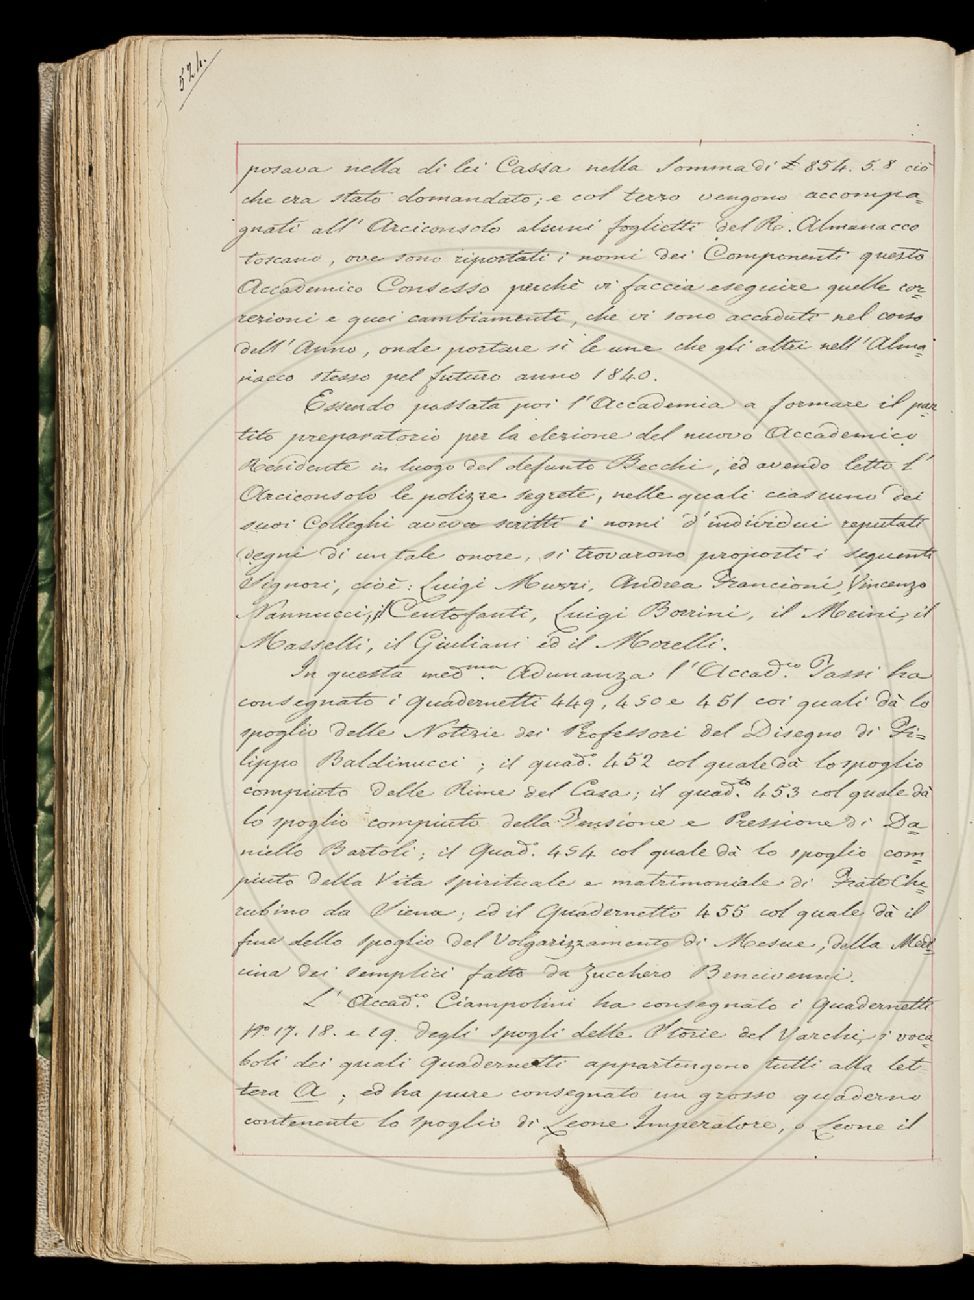 524.
posava nella di lei Cassa nella Somma di £ 854. 5. 8 ciò
che era stato domandato; e col terzo vengono accompa=
gnati all' Arciconsolo alcuni foglietti del R. Almanacco
toscano, ove sono riportati i nomi dei Componenti questo
Accademico Consesso perchè vi faccia eseguire quelle cor=
rezioni e quei cambiamenti, che vi sono accaduti nel corso
dell' Anno, onde portare sì le une che gli altri nell' Alma=
nacco stesso pel futuro anno 1840.
Essendo passata poi l' Accademia a formare il par=
tito preparatorio per la elezione del nuovo Accademico
Residente in luogo del defunto Becchi, ed avendo letto l'
Arciconsolo le polizze segrete, nelle quali ciascuno dei
suoi Colleghi aveva scritti i nomi d' individui reputati
degni di un tale onore, si trovarono proposti i seguenti
Signori, cioè: Luigi Muzzi, Andrea Francioni, Vincenzo
Nannucci, il Centofanti, Luigi Borrini, il Meini, il
Masselli, il Giuliani ed il Morelli.
In questa med.ma Adunanza l' Accad.co Tassi ha
consegnato i quadernetti 449, 450 e 451 coi quali dà lo
spoglio delle Notizie dei Professori del Disegno di Fi=
lippo Baldinucci; il quad.o 452 col quale dà lo spoglio
compiuto delle Rime del Casa; il quad.to 453 col quale dà
lo spoglio compiuto della Tensione e Pressione di Da=
niello Bartoli; il Quad.o 454 col quale dà lo spoglio com=
piuto della Vita spirituale e matrimoniale di Frate Che=
rubino da Siena; ed il quadernetto 455 col quale dà il
fine dello spoglio del Volgarizzamento di Mesue, della Medi=
cina dei semplici fatto da Zucchero Bencivenni.
L' Accad.co Ciampolini ha consegnato i Quadernetti
N.o 17. 18. e 19. degli spogli delle Storie del Varchi, i voca=
boli dei quali Quadernetti appartengono tutti alla let=
tera A; ed ha pure consegnato un grosso quaderno
contenente lo spoglio di Leone Imperatore, o Leone il